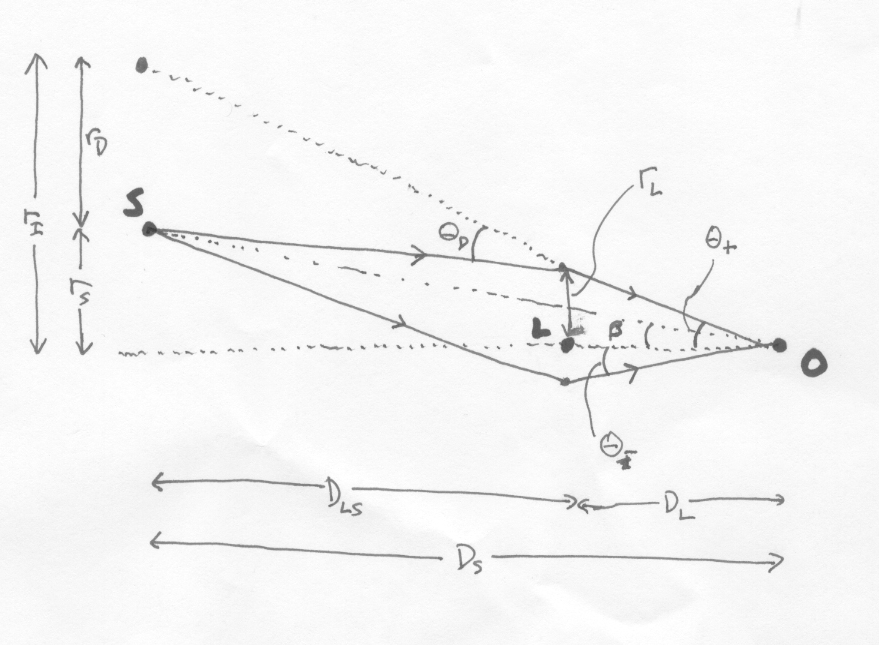 r_D
S
r_I
r_S
Θ_D
r_L
Θ_+
L
β
O
Θ_-
D_LS
D_L
D_S